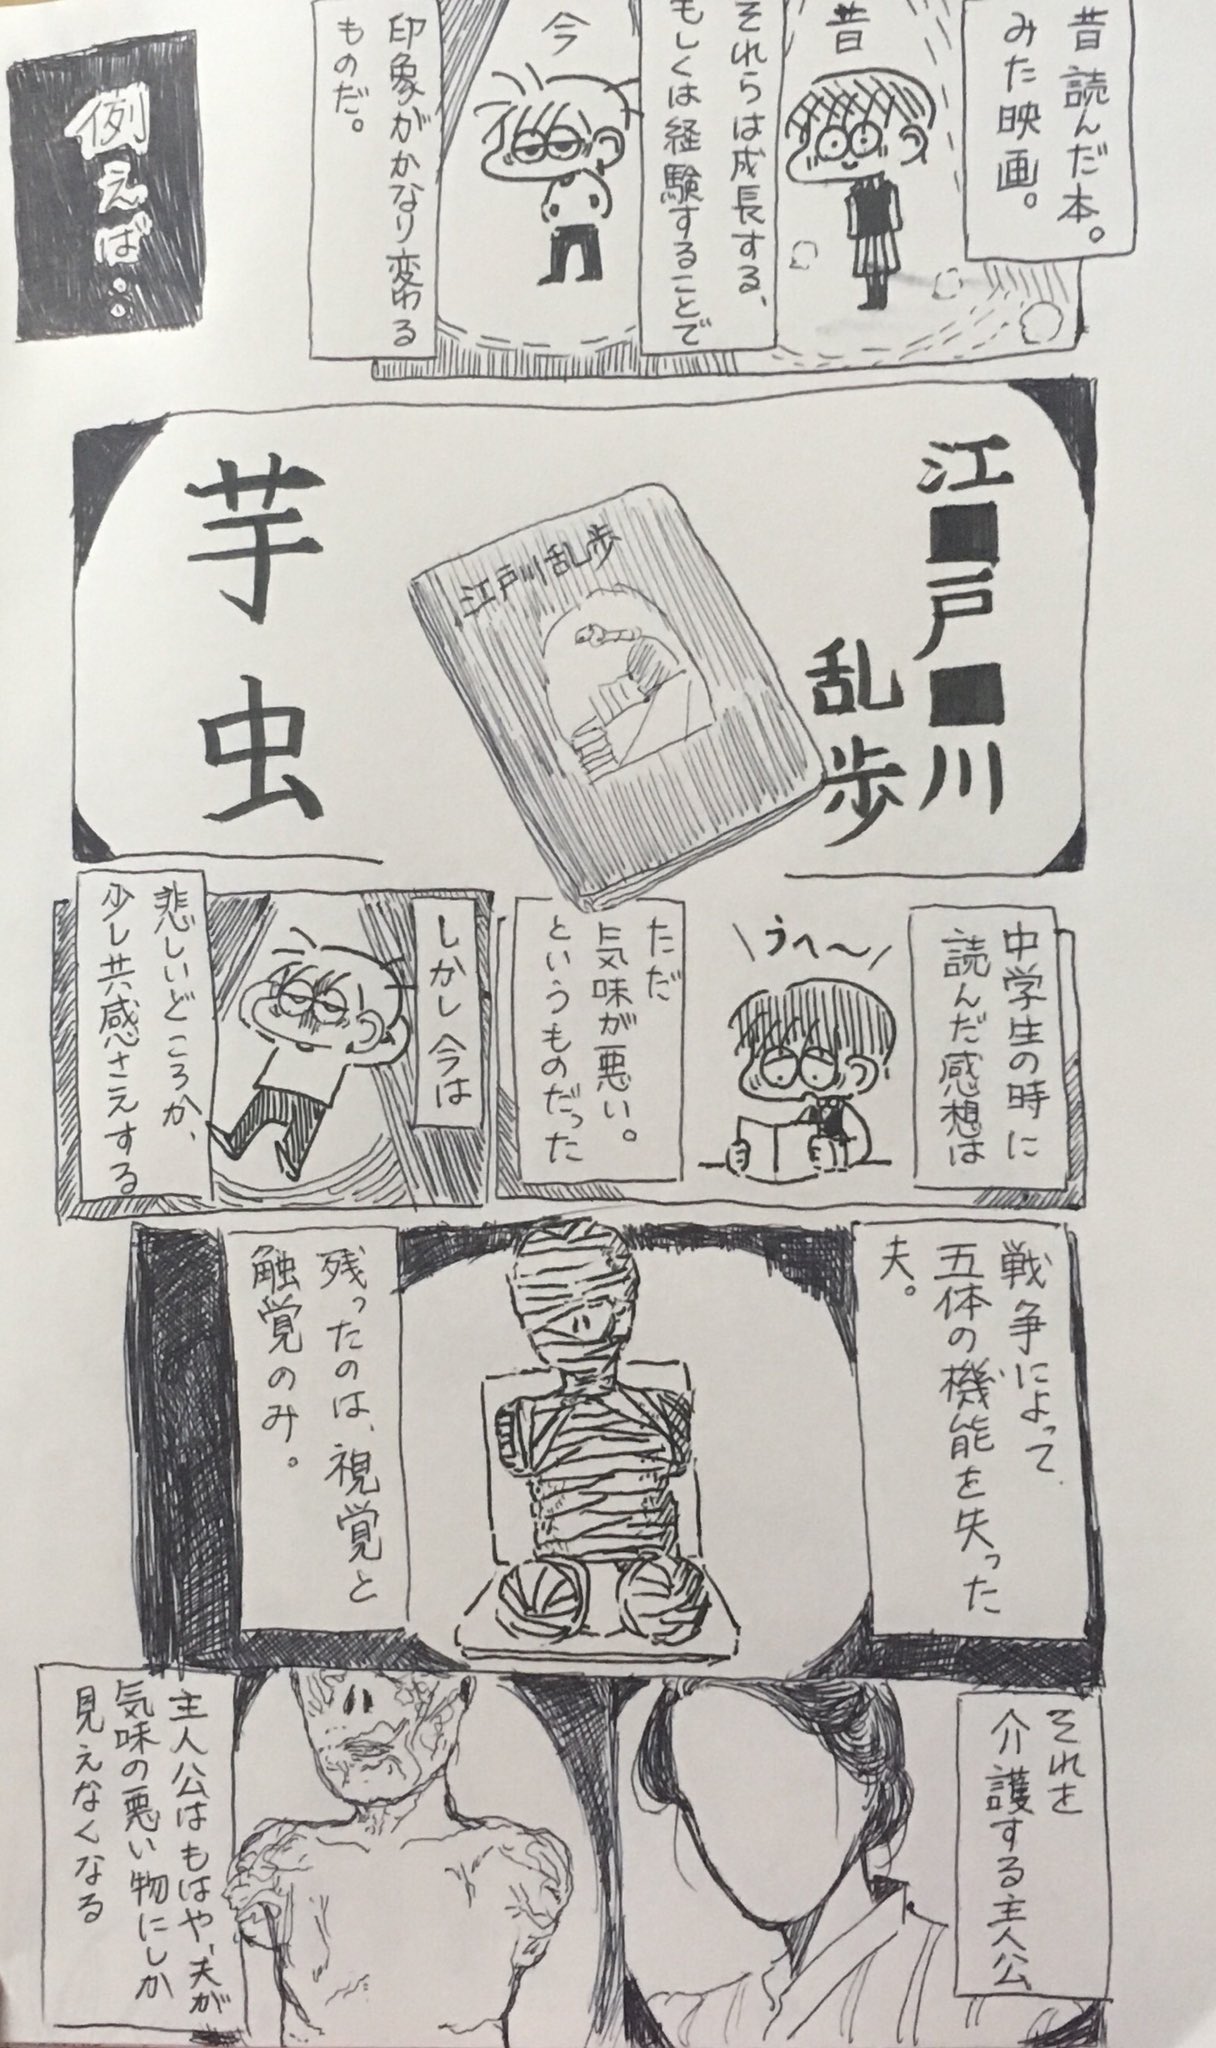 昔読んだ本。
みた映画。
昔
それらは成長する、
もしくは経験することで
今
印象がかなり変わる
ものだ。
例えば…
江■戸■川
乱歩
江戸川乱歩
芋虫
中学生の時に
読んだ感想は
うへ〜
ただ
気味が悪い。
というものだった
しかし今は
悲しいどころか、
少し共感さえする
戦争によって、
五体の機能を失った
夫。
残ったのは、視覚と
触覚のみ。
それを
介護する主人公
主人公はもはや、夫が
気味の悪い物にしか
見えなくなる